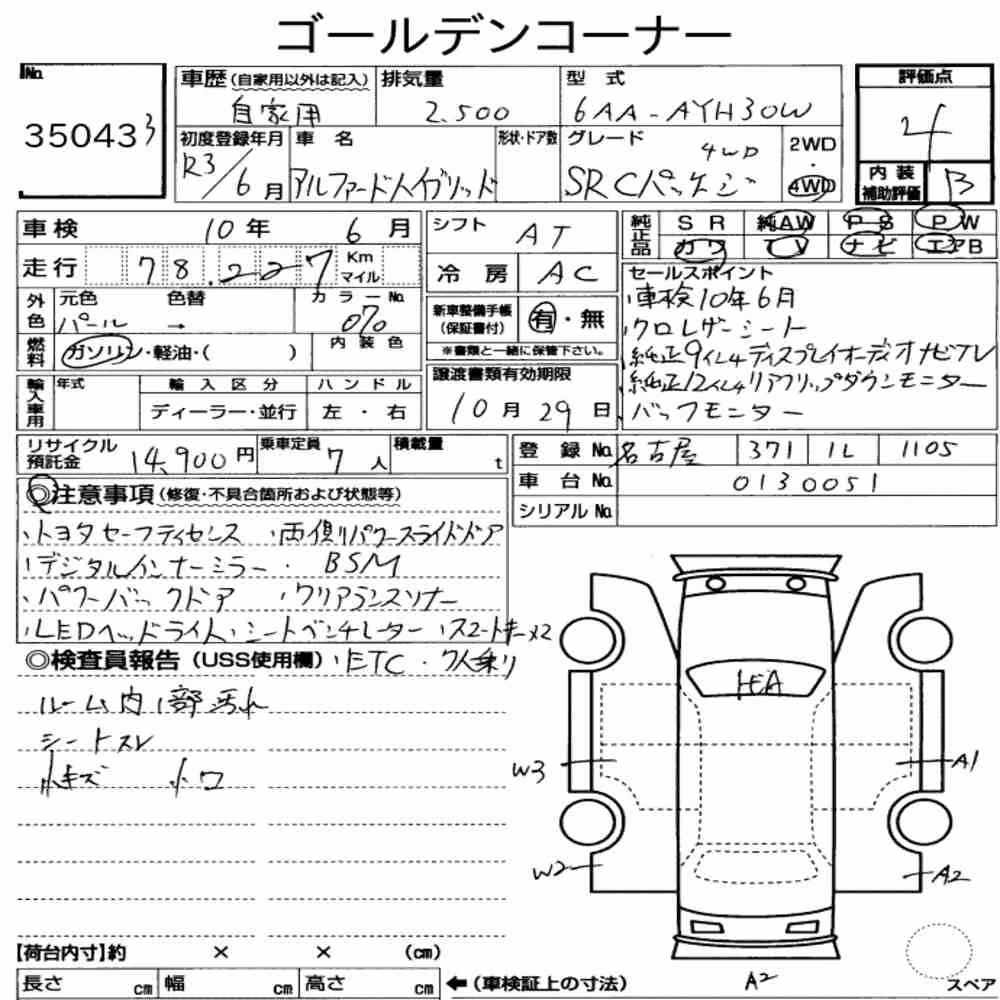 ゴールデンコーナー
No. 35043 3
車歴 (自家用以外は記入) 自家用
排気量 2,500
型式 6AA-AYH30W
評価点 4
内装補助評価 B
初度登録年月 R3/6月
車名 アルファードハイブリッド
形状・ドア数
グレード 4WD SR Cパッケージ
2WD・4WD
車検 10年 6月
走行 78,227 Km マイル
外色 元色 パール 色替 → カラーNo. 070
燃料 ガソリン・軽油・( ) 内装色
輸入車用 年式 輸入区分 ディーラー・並行 ハンドル 左・右
シフト AT
冷房 AC
新車整備手帳(保証書付) 有・無
※書類と一緒に保管下さい。
譲渡書類有効期限
10月29日
純正品 SR 純AW PS PW
カワ TV ナビ エアB
セールスポイント
・車検10年6月
・クロレザーシート
・純正9インチディスプレイオーディオナビTV
・純正12インチリアフリップダウンモニター
・バックモニター
リサイクル預託金 14,900円
乗車定員 7人
積載量 t
登録No. 名古屋 371 ル 1105
車台No. 0130051
シリアルNo.
◎注意事項 (修復・不具合箇所および状態等)
・トヨタセーフティセンス ・両側パワースライドドア
・デジタルインナーミラー ・BSM
・パワーバックドア ・クリアランスソナー
・LEDヘッドライト ・シートベンチレーター ・スマートキー×2
◎検査員報告 (USS使用欄) ・ETC ・7人乗り
ルーム内1部汚れ
シートスレ
小キズ 小ワ
HEA
W3
A1
W2
A2
A2
【荷台内寸】約 × × (cm)
長さ cm 幅 cm 高さ cm ←(車検証上の寸法)
スペア